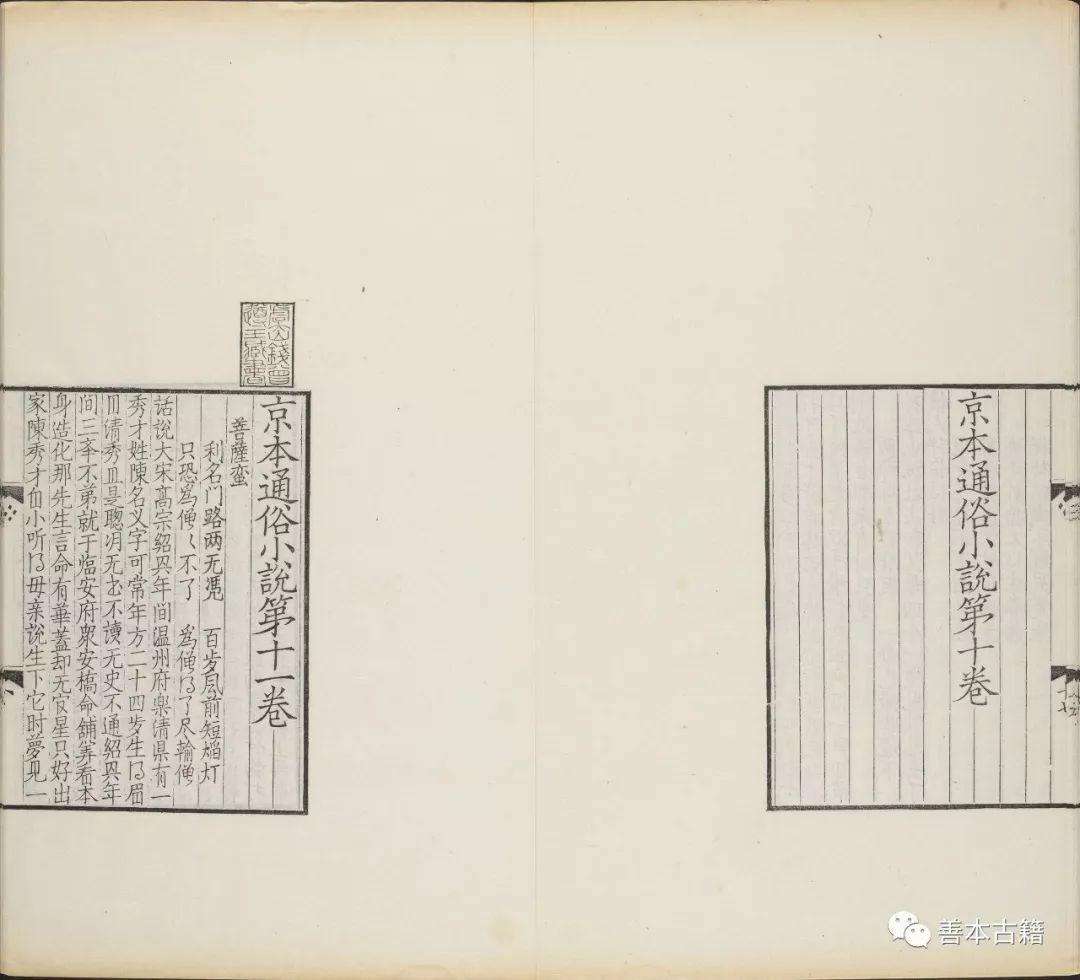 京本通俗小說第十卷
京本通俗小說第十一卷
虞山錢曾
遵王藏書
菩薩蛮
利名门路两无凴　百步风前短焰灯
只恐爲僧〻不了　爲僧得了尽输僧
话說大宋髙宗紹兴年间温州府楽清県有一
秀才姓陳名义字可常年方二十四岁生得眉
目清秀且是聪明无书不讀无史不通紹兴年
间三举不第就于临安府衆安橋命舖筭看本
身造化那先生言命有華盖却无官星只好出
家陳秀才自小听得母亲說生下它时夢见一
善本古籍